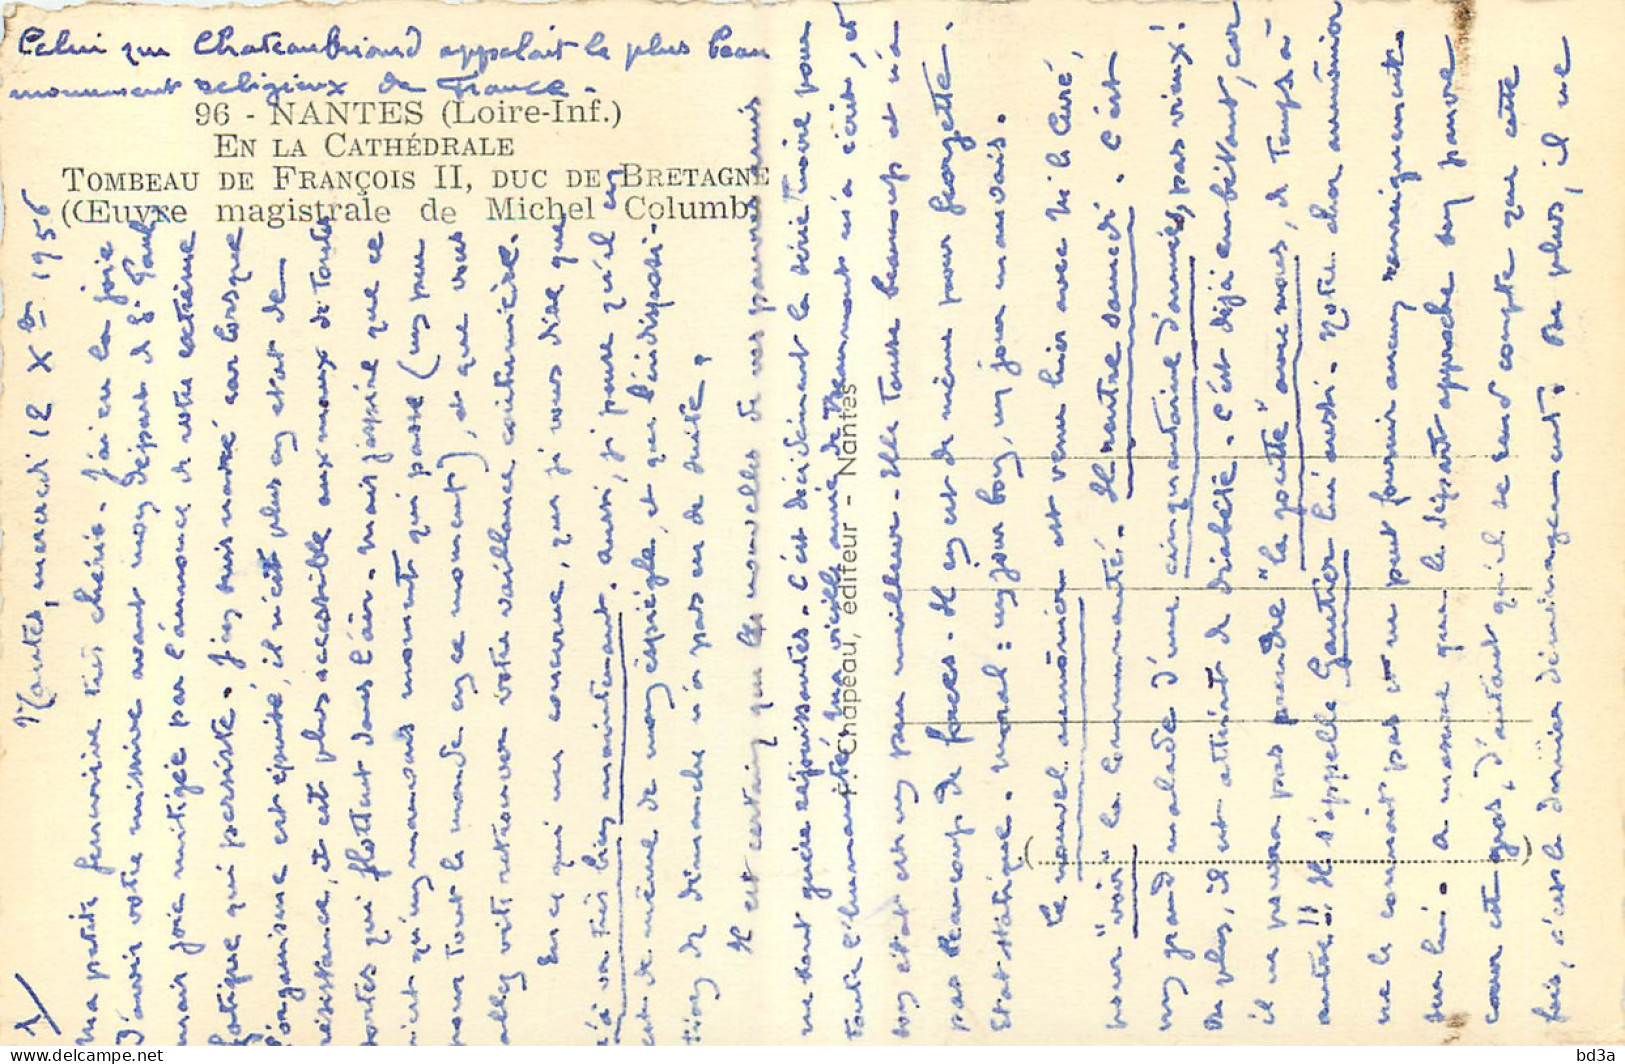 Celui que Chateaubriand appelait le plus beau
monument religieux de France.
96 - NANTES (Loire-Inf.)
EN LA CATHÉDRALE
TOMBEAU DE FRANÇOIS II, DUC DE BRETAGNE
(Œuvre magistrale de Michel Columb
F. Chapeau, éditeur - Nantes
1/
Nantes, mercredi 12 Xbre 1956
Ma petite fervoise très chérie. J'ai eu la joie
d'avoir votre missive avant mon départ de St Paul,
mais joie mitigée par l'annonce de votre extrême
fatigue qui persiste. J'en suis navré car lorsque
l'organisme est épuisé, il n'est plus en état de
résistance, et est plus accessible aux maux de toutes
sortes qui flottent dans l'air. Mais j'espère que ce
n'est qu'un mauvais moment qui passe (un peu
pour tout le monde en ce moment), et que vous
allez vite retrouver votre vaillance coutumière.
En ce qui me concerne, que je vous dise que
ça va très bien maintenant. Aussi, je pense qu'il en
est de même de mon espiègle, et que l'indisposi-
tion de dimanche n'a pas eu de suite.
Il est certain que les nouvelles de nos pauvres amis
ne sont guère réjouissantes. C'est décidément la série noire pour
toute l'humanité, ma vieille amie de m'a écrit, et
son état est un peu meilleur. Elle tousse beaucoup et n'a
pas beaucoup de forces. Il en est de même pour Georgette.
Etat statique. Moral : un jour bon, un jour mauvais.
Le nouvel aumônier est venu hier avec M. le Curé,
pour "voir" la Communauté. Il rentre samedi. C'est
un grand malade d'une cinquantaine d'années, pas vieux !
De plus, il est atteint de diabète. C'est déjà embêtant, car
il ne pourra pas prendre "la goutte" avec nous, de temps à
autre !! Il s'appelle Gautier lui aussi. Notre cher aumônier
ne le connait pas et ne peut fournir aucun renseignement
sur lui. A mesure que le départ approche son pauvre
cœur est gros, d'autant qu'il se rend compte que cette
fois, c'est le dernier déménagement. De plus, il ne